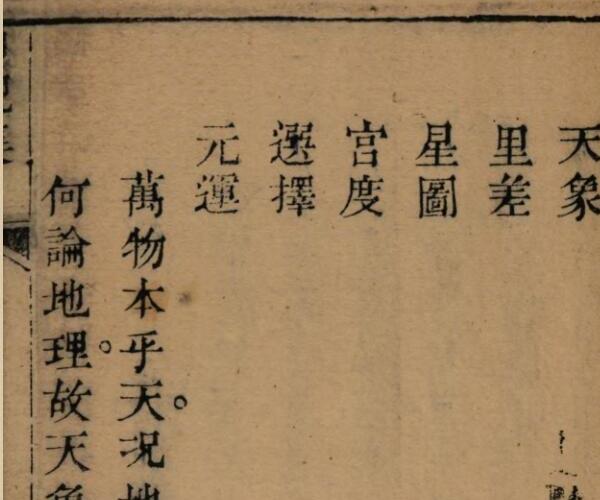 天象
里差
星圖
宮度
選擇
元運
萬物本乎天。況地
何論地理。故天象